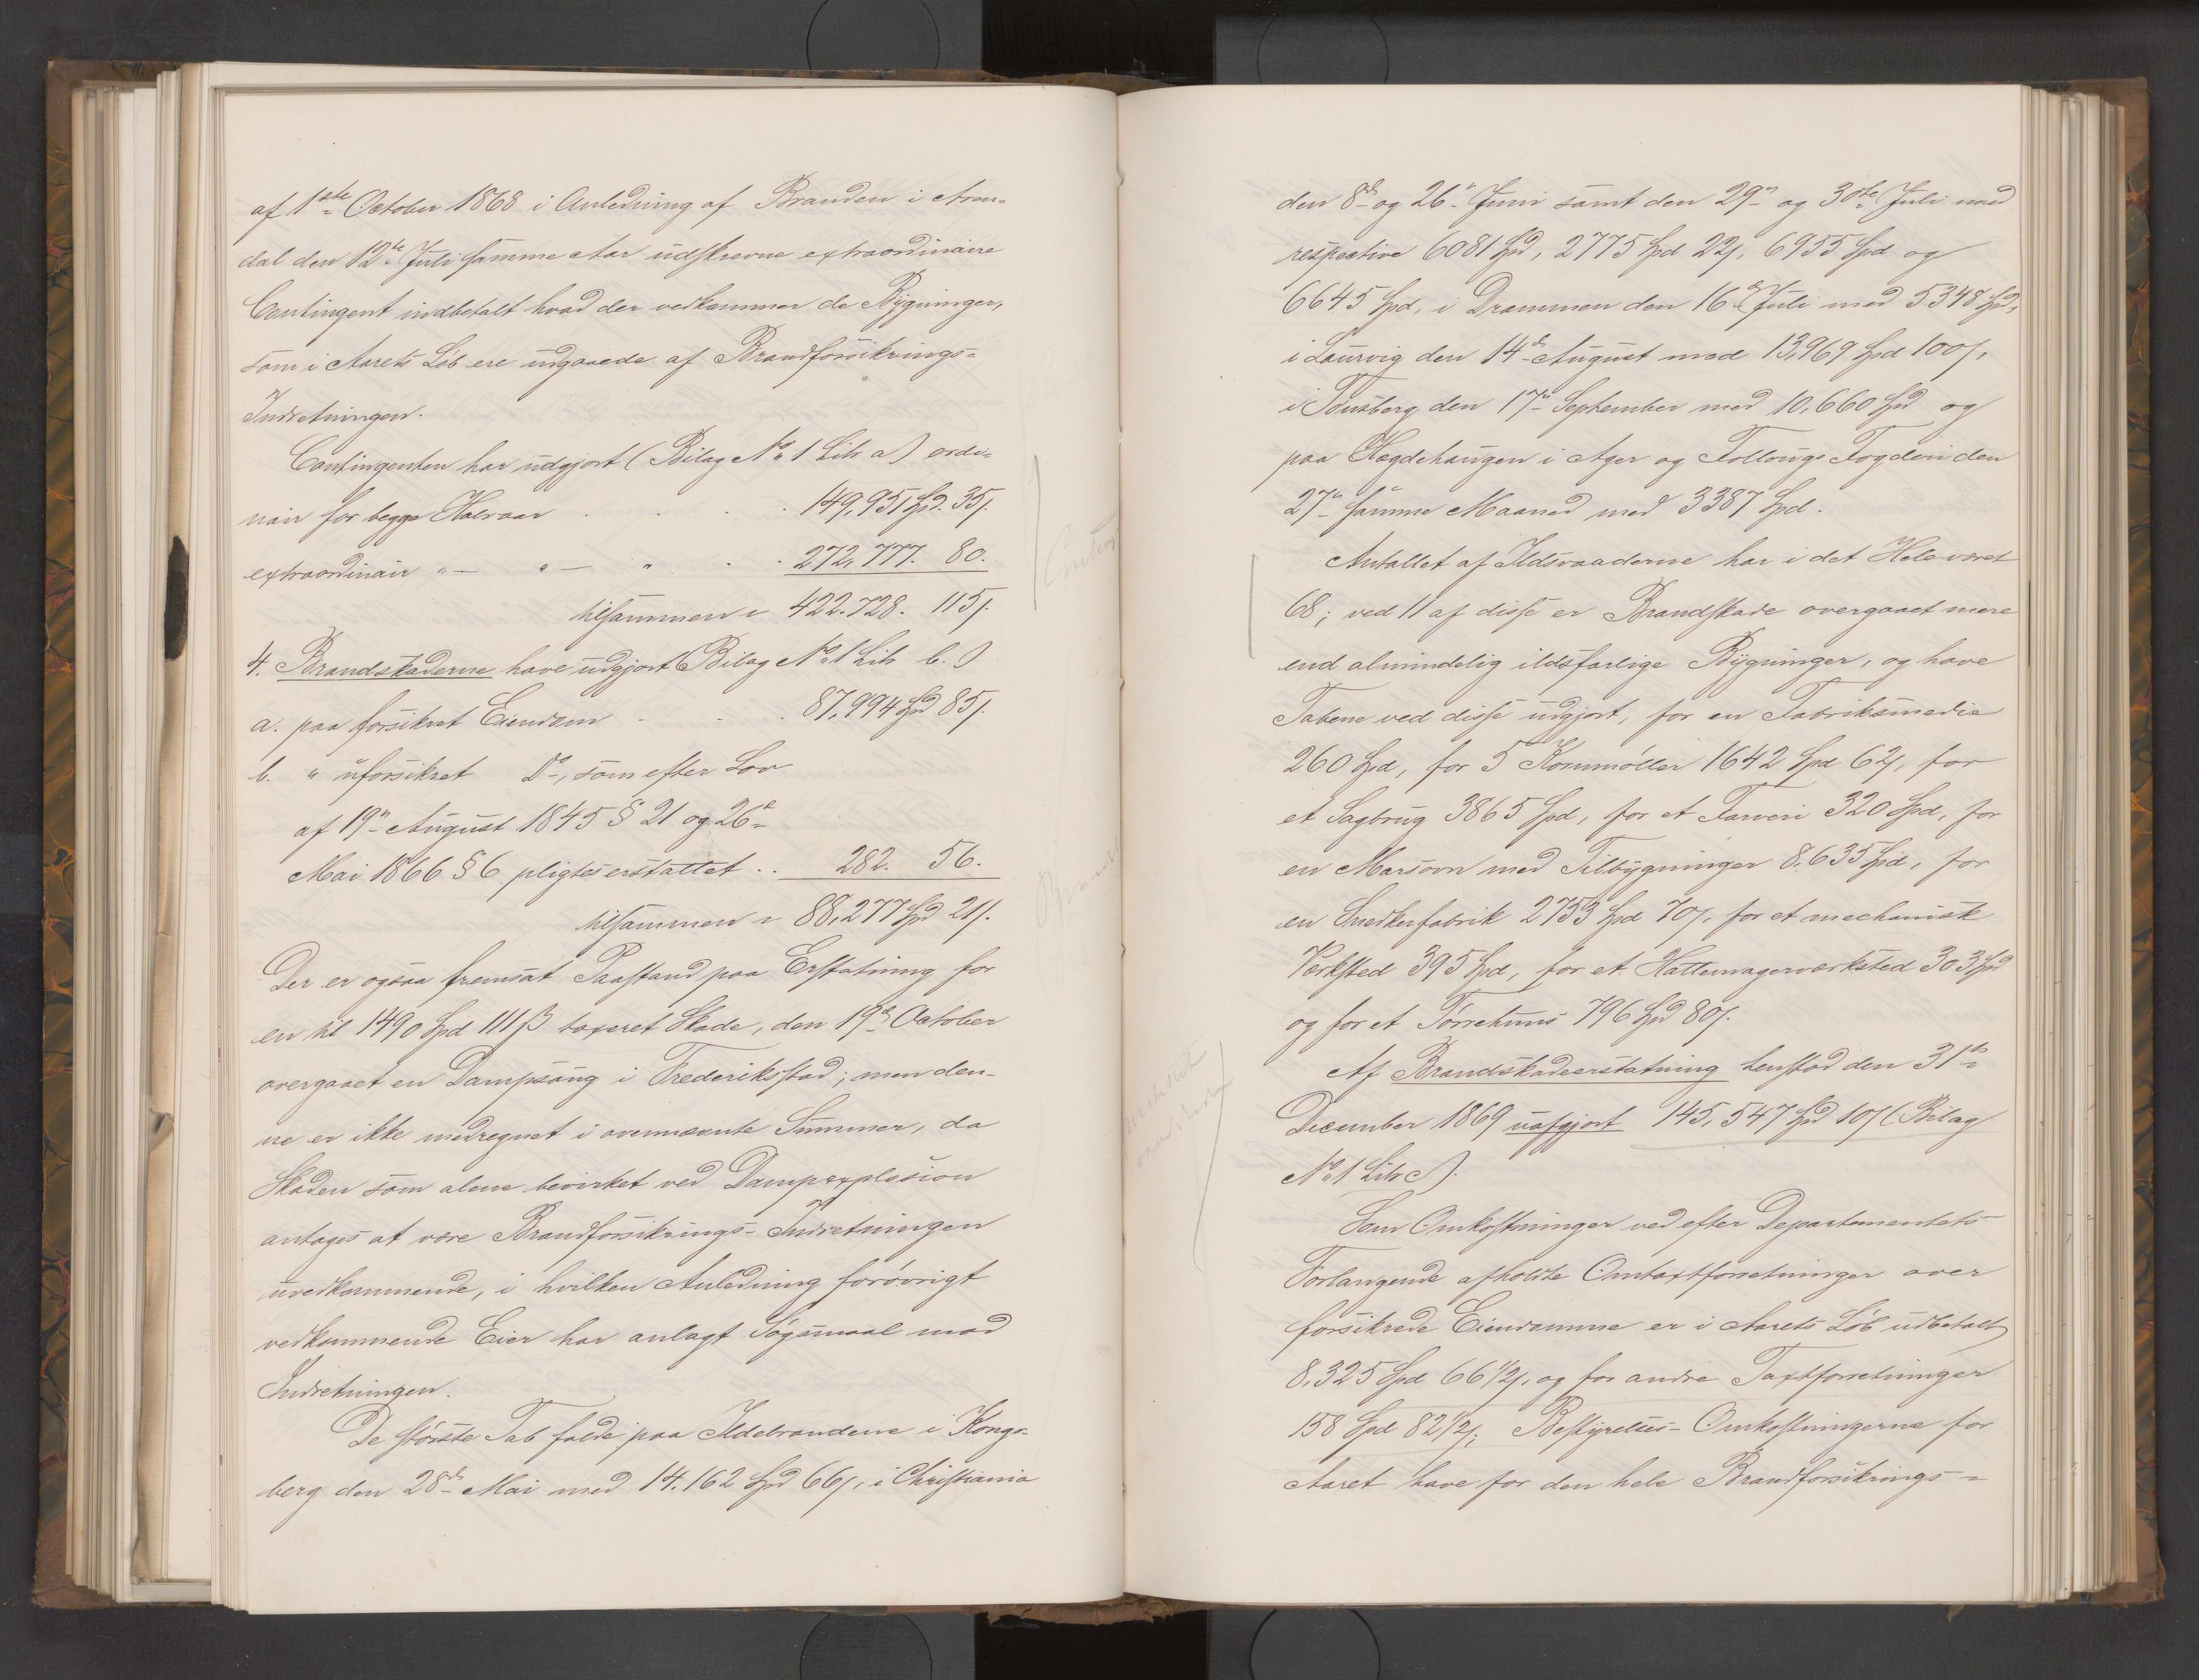 af 1ste October 1868 i Anledning af Branden i Aren-
dal den 12te Juli samme Aar udskrevne extraordinaire
Contingent indbetalt hvad der vedkommer de Bygninger,
som i Aarets Løb ere udgaaede af Brandforsikrings-
Indretningen.
Contingenten har udgjort (Bilag No 1 Litr a) ordi-
nair for begge Halvaar . . . . 149,951 Spd. 35ſ.
extraordinair " — " — " . . 272,777. 80.
tilsammen = 422.728. 115ſ.
4. Brandskaderne have udgjort (Bilag No 1 Litr b.)
a. paa forsikret Eiendom . . . 87,994 Spd 85ſ.
b. " uforsikret Do, som efter Lov
af 19n August 1845 § 21 og 26e
Mai 1866 § 6 pligtes erstattet . . 282. 56.
tilsammen = 88,277 Spd 21ſ.
Der er ogsaa fremsat Paastand paa Erstatning for
en til 1490 Spd 111 β taxeret Skade, den 19de October
overgaaet en Dampsaug i Frederiksstad; men den-
ne er ikke medregnet i ovennævnte Summer, da
Skaden som alene bevirket ved Dampexplosion
antages at være Brandforsikrings-Indretningen
uvedkommende, i hvilken Anledning forøvrigt
vedkommende Eier har anlagt Søgsmaal mod
Indretningen.
De største Tab falde paa Ildebrandene i Kongs-
berg den 28de Mai med 14.162 Spd 66ſ, i Christiania
den 8de og 26e Juni samt den 29n og 30te Juli med
respective 6081 Spd, 2775 Spd 22ſ, 6955 Spd og
6645 Spd, i Drammen den 16de Juli med 5348 Spd,
i Laurvig den 14de August med 13,969 Spd 100ſ,
i Tønsberg den 17n September med 10,660 Spd og
paa Hægdehaugen i Ager og Follougs Fogderi den
27n samme Maaned med 3387 Spd.
Antallet af Ildsvaaderne har i det Hele været
68; ved 11 af disse er Brandskade overgaaet mere
end almindelig ildsfarlige Bygninger, og have
Tabene ved disse udgjort, for en Fabriksmedie
260 Spd, for 5 Kornmøller 1642 Spd 62ſ, for
et Sagbrug 3865 Spd, for et Farveri 320 Spd, for
en Marsovn med Tilbygninger 8.635 Spd, for
en Snedkerfabrik 2753 Spd 70ſ, for et mechanisk
Værksted 395 Spd, for et Hattemagerværksted 303 Spd
og for et Tørrehuus 796 Spd 80ſ.
Af Brandskadeerstatning henstod den 31te
December 1869 uafgjort 145,547 Spd 10ſ (Bilag
No 1 Litr c).
Som Omkostninger ved efter Departementets
Forlangende afholdte Omtaxtforretninger over
forsikrede Eiendomme er i Aarets Løb udbetalt
8.325 Spd 66 1/2ſ, og for andre Taxtforretninger
158 Spd 82 1/2ſ; Bestyrelses-Omkostningerne for
Aaret have for den hele Brandforsikrings-